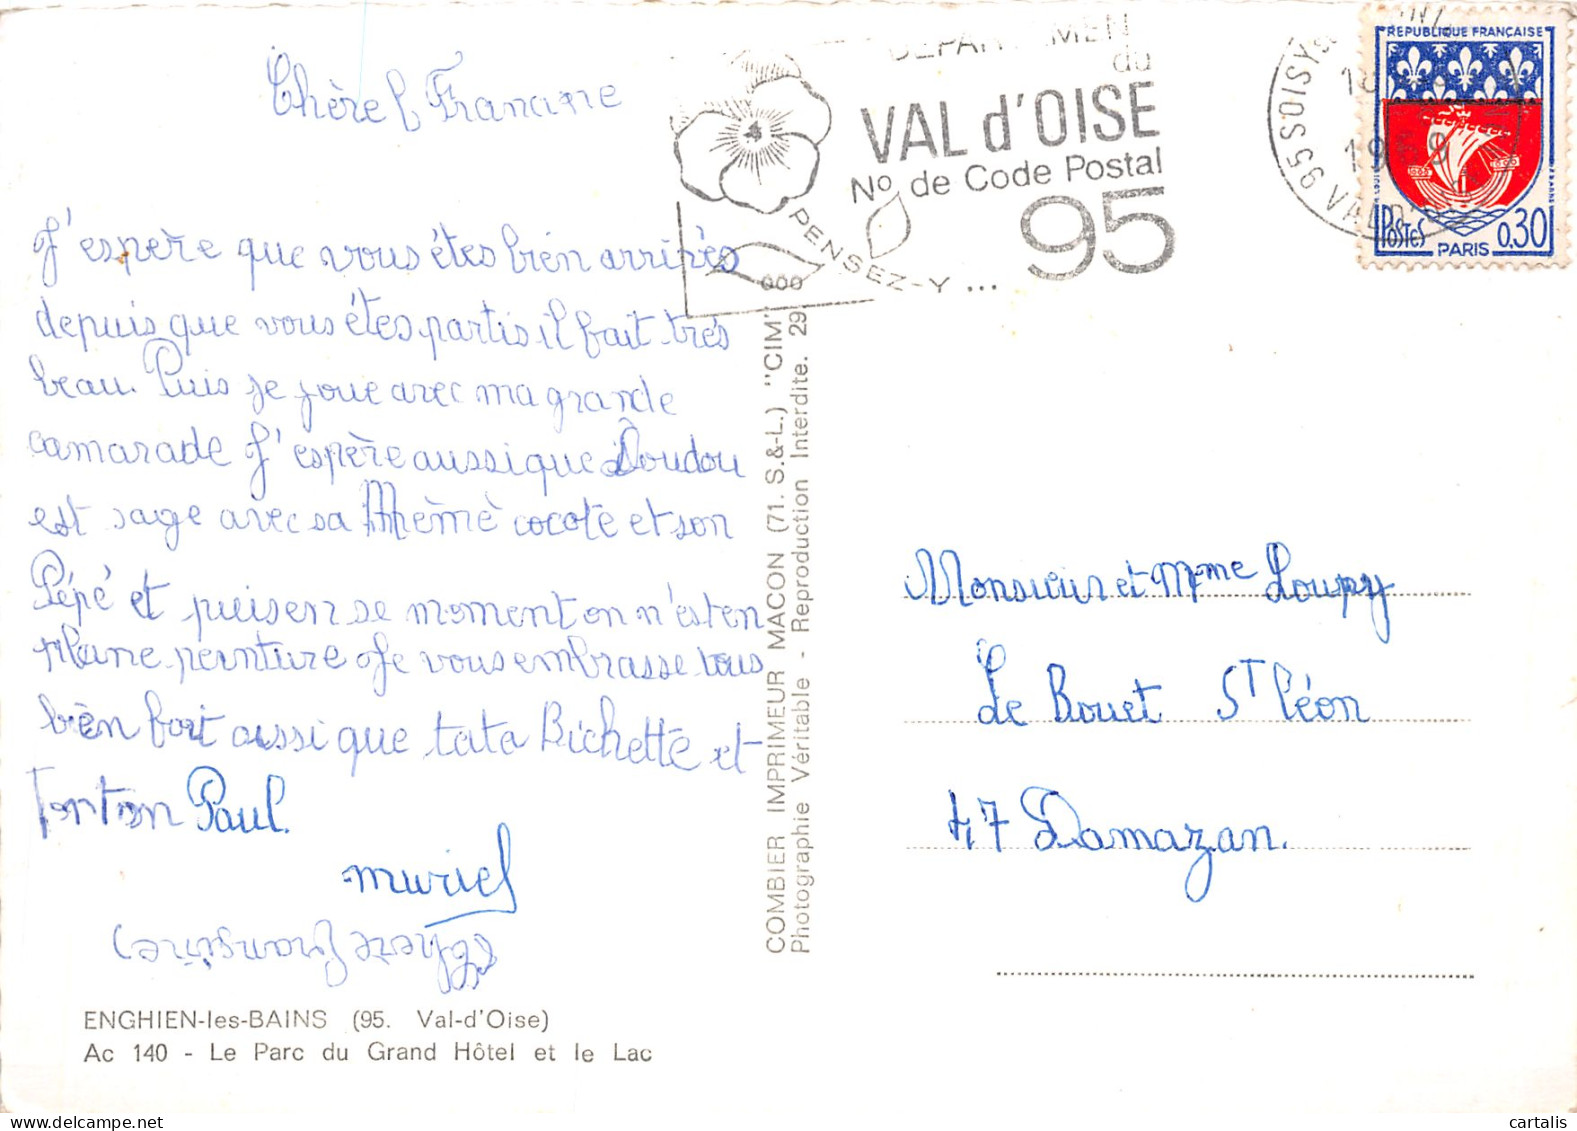 Chère Francine
J'espère que vous étes bien arrivés
depuis que vous étes partis il fait très
beau. Puis je joue avec ma grande
camarade J'espère aussi que Doudou
est sage avec sa Mémè cocote et son
Pépé et puis en se moment on n'est en
pleine peinture Je vous embrasse tous
bien fort aussi que tata Bichette et
Tonton Paul.
muriel
Chère Francine
ENGHIEN-les-BAINS (95. Val-d'Oise)
Ac 140 - Le Parc du Grand Hôtel et le Lac
COMBIER IMPRIMEUR MACON (71. S.&-L.) "CIM"
Photographie Véritable - Reproduction Interdite. 29
DEPARTEMEN
du
VAL d'OISE
No de Code Postal
95
PENSEZ-Y...
95 SOISY
VAL D'
REPUBLIQUE FRANÇAISE
POSTES
0,30
PARIS
Monsieur et Mme Loupy
Le Bouet St Léon
47 Damazan.
cartalis